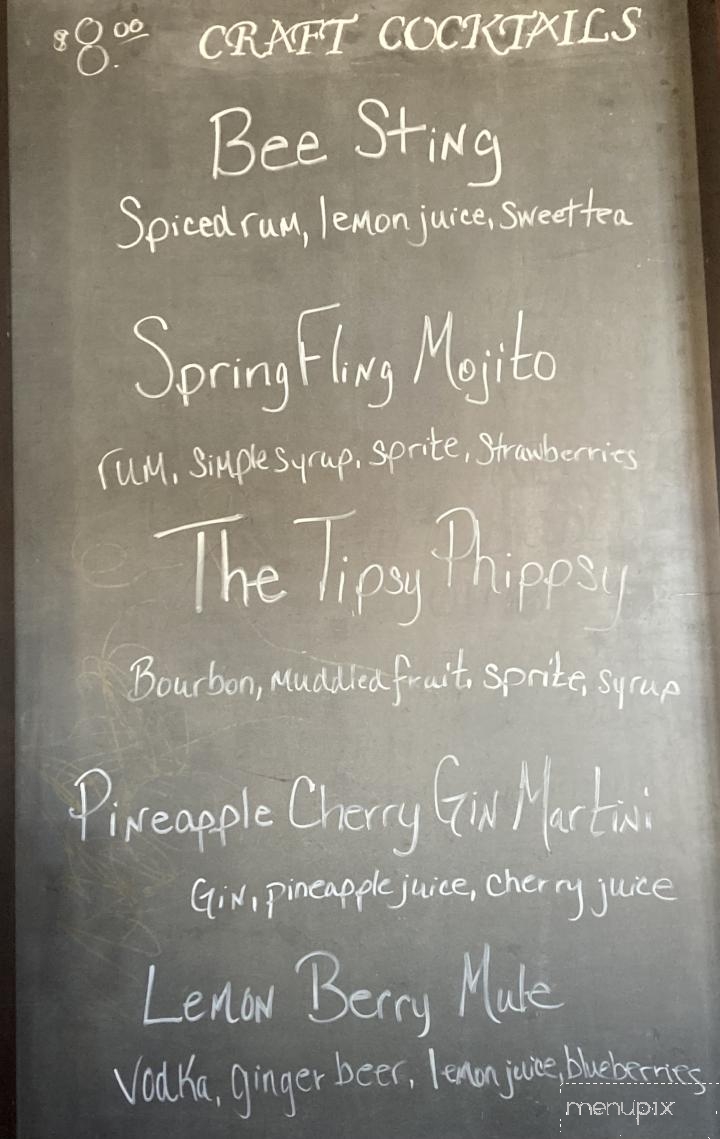 $8.00 CRAFT COCKTAILS
Bee Sting
Spiced rum, lemon juice, sweet tea
Spring Fling Mojito
rum, simple syrup, sprite, strawberries
The Tipsy Phippsy
Bourbon, muddled fruit, sprite, syrup
Pineapple Cherry Gin Martini
Gin, pineapple juice, cherry juice
Lemon Berry Mule
Vodka, ginger beer, lemon juice, blueberries
menupix